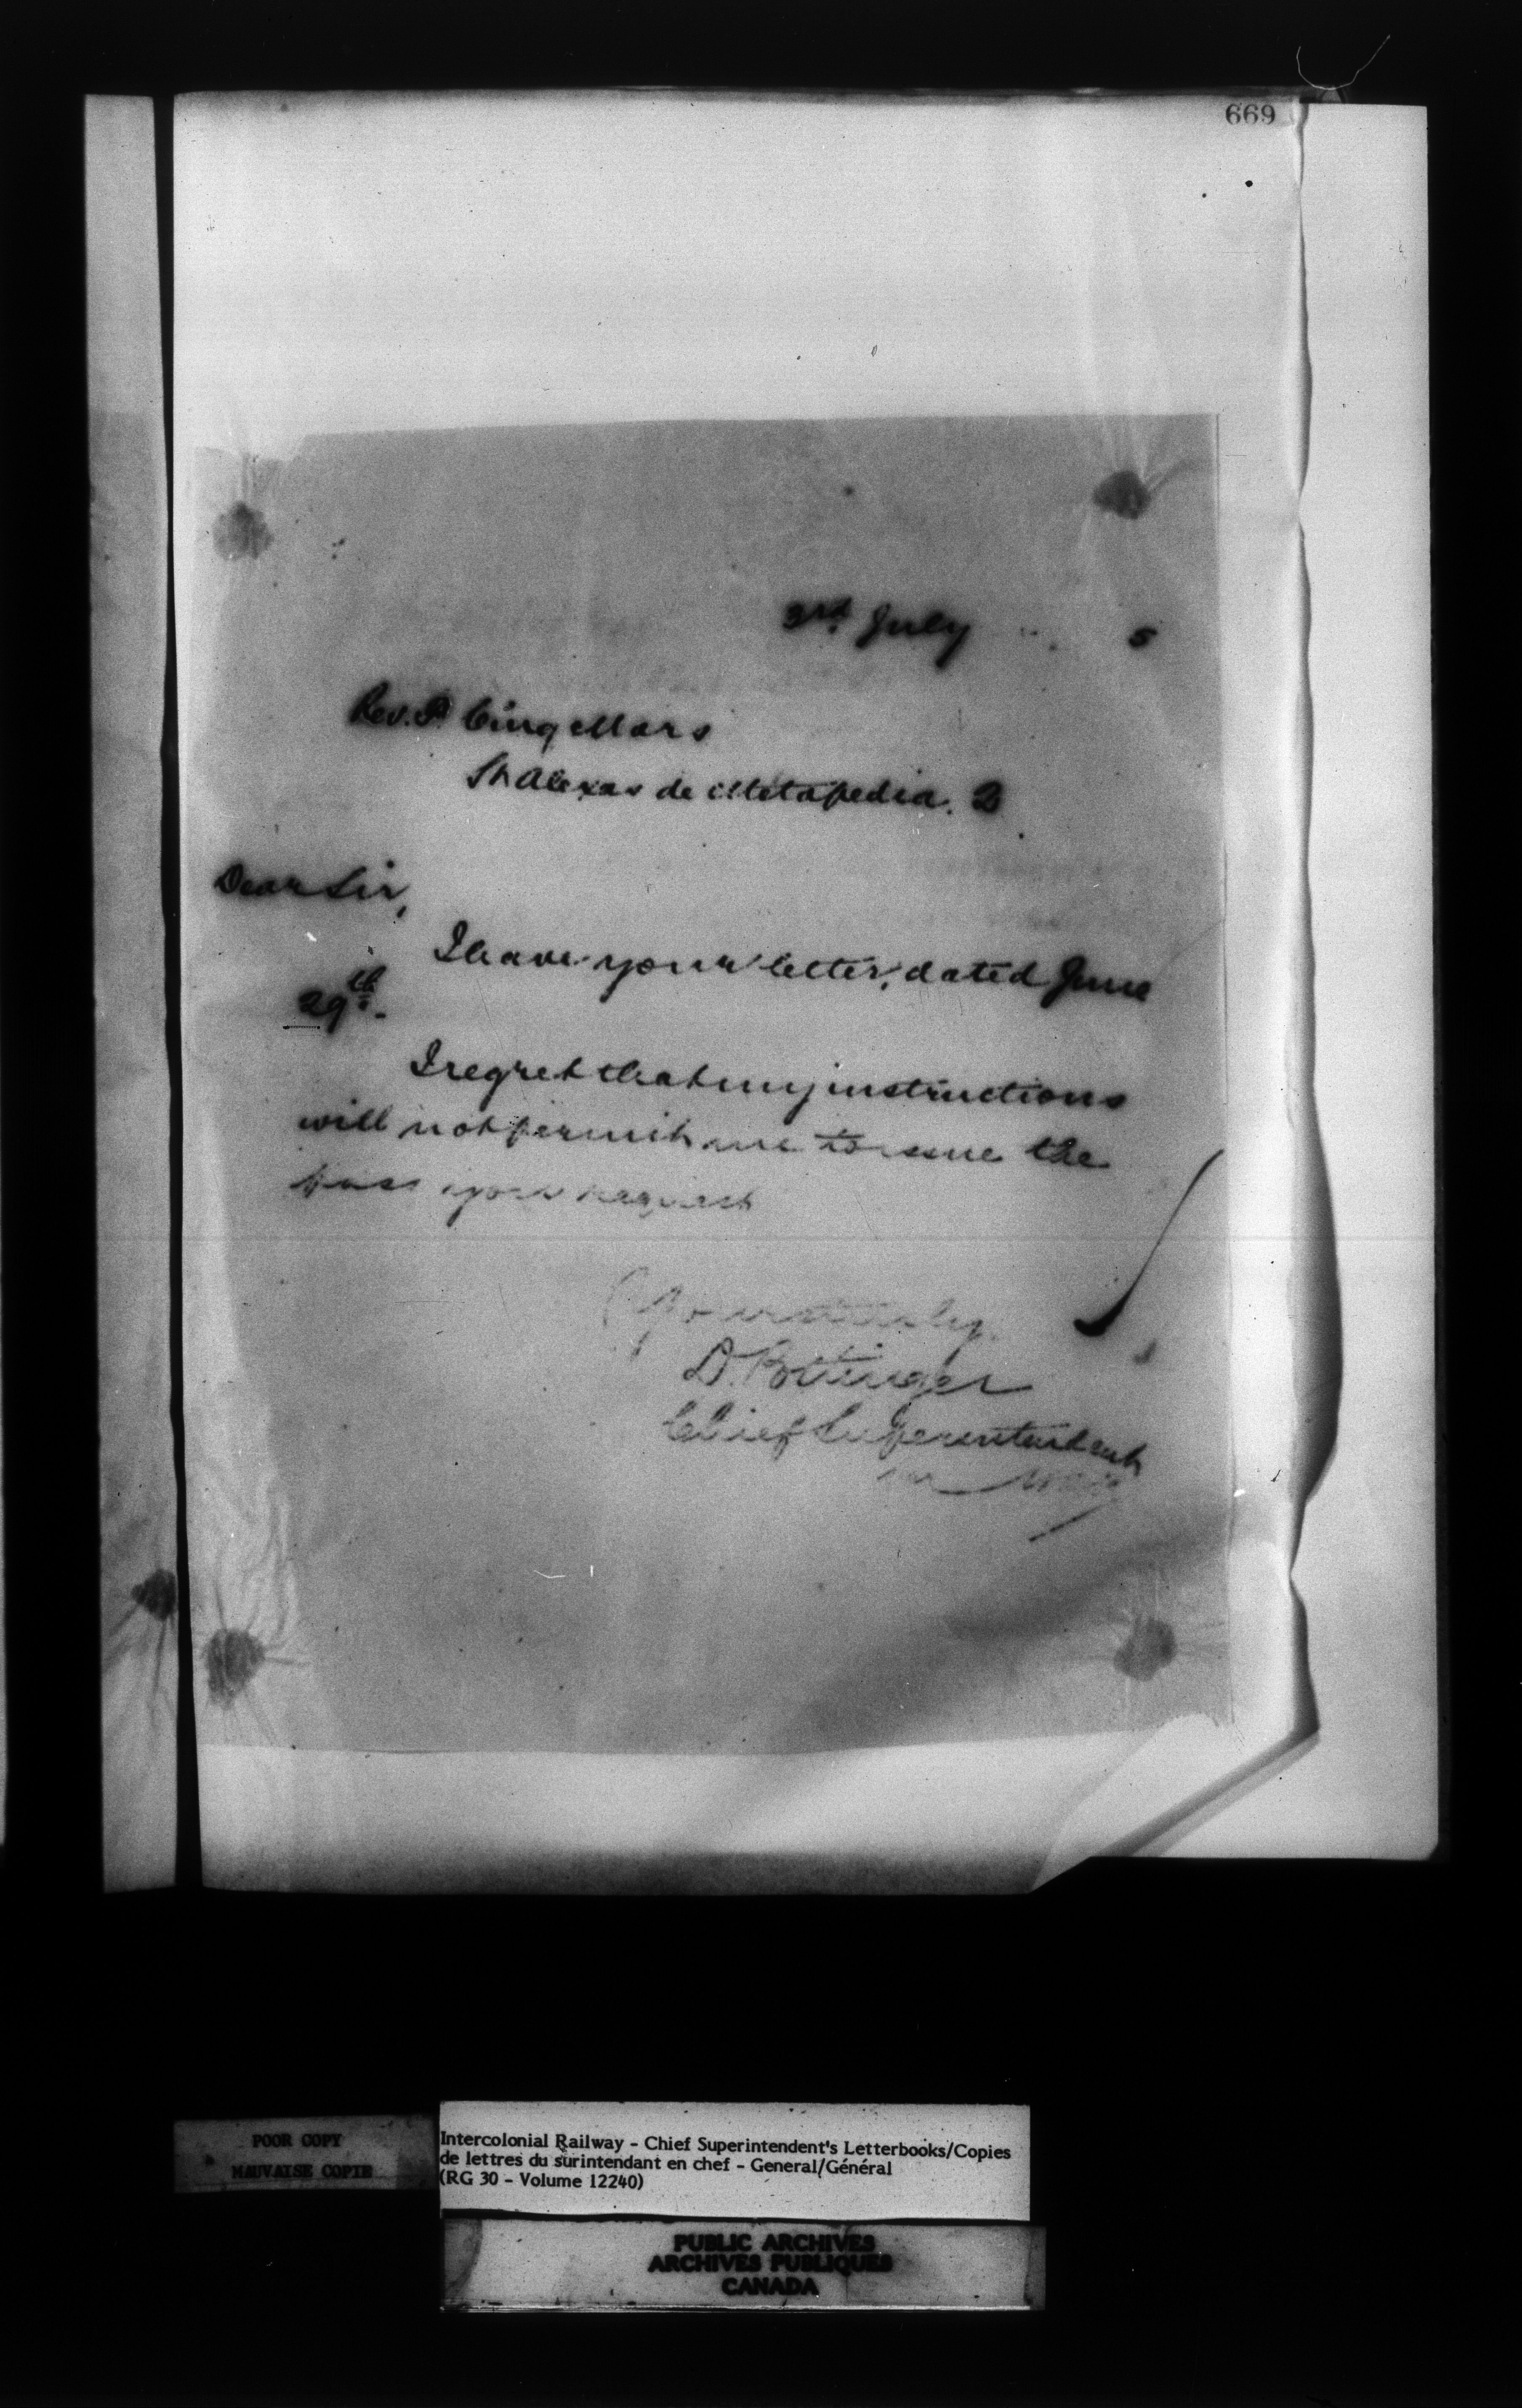 669
3rd. July 5
Rev. P. Cinq Mars
St Alexas de Metapedia. Q
Dear Sir,
I have your letter, dated June
29th.
I regret that my instructions
will not permit me to issue the
pass you request
Yours truly
D. Pottinger
Chief Superintendent
POOR COPY
MAUVAISE COPIE
Intercolonial Railway - Chief Superintendent's Letterbooks/Copies
de lettres du surintendant en chef - General/Général
(RG 30 - Volume 12240)
PUBLIC ARCHIVES
ARCHIVES PUBLIQUES
CANADA